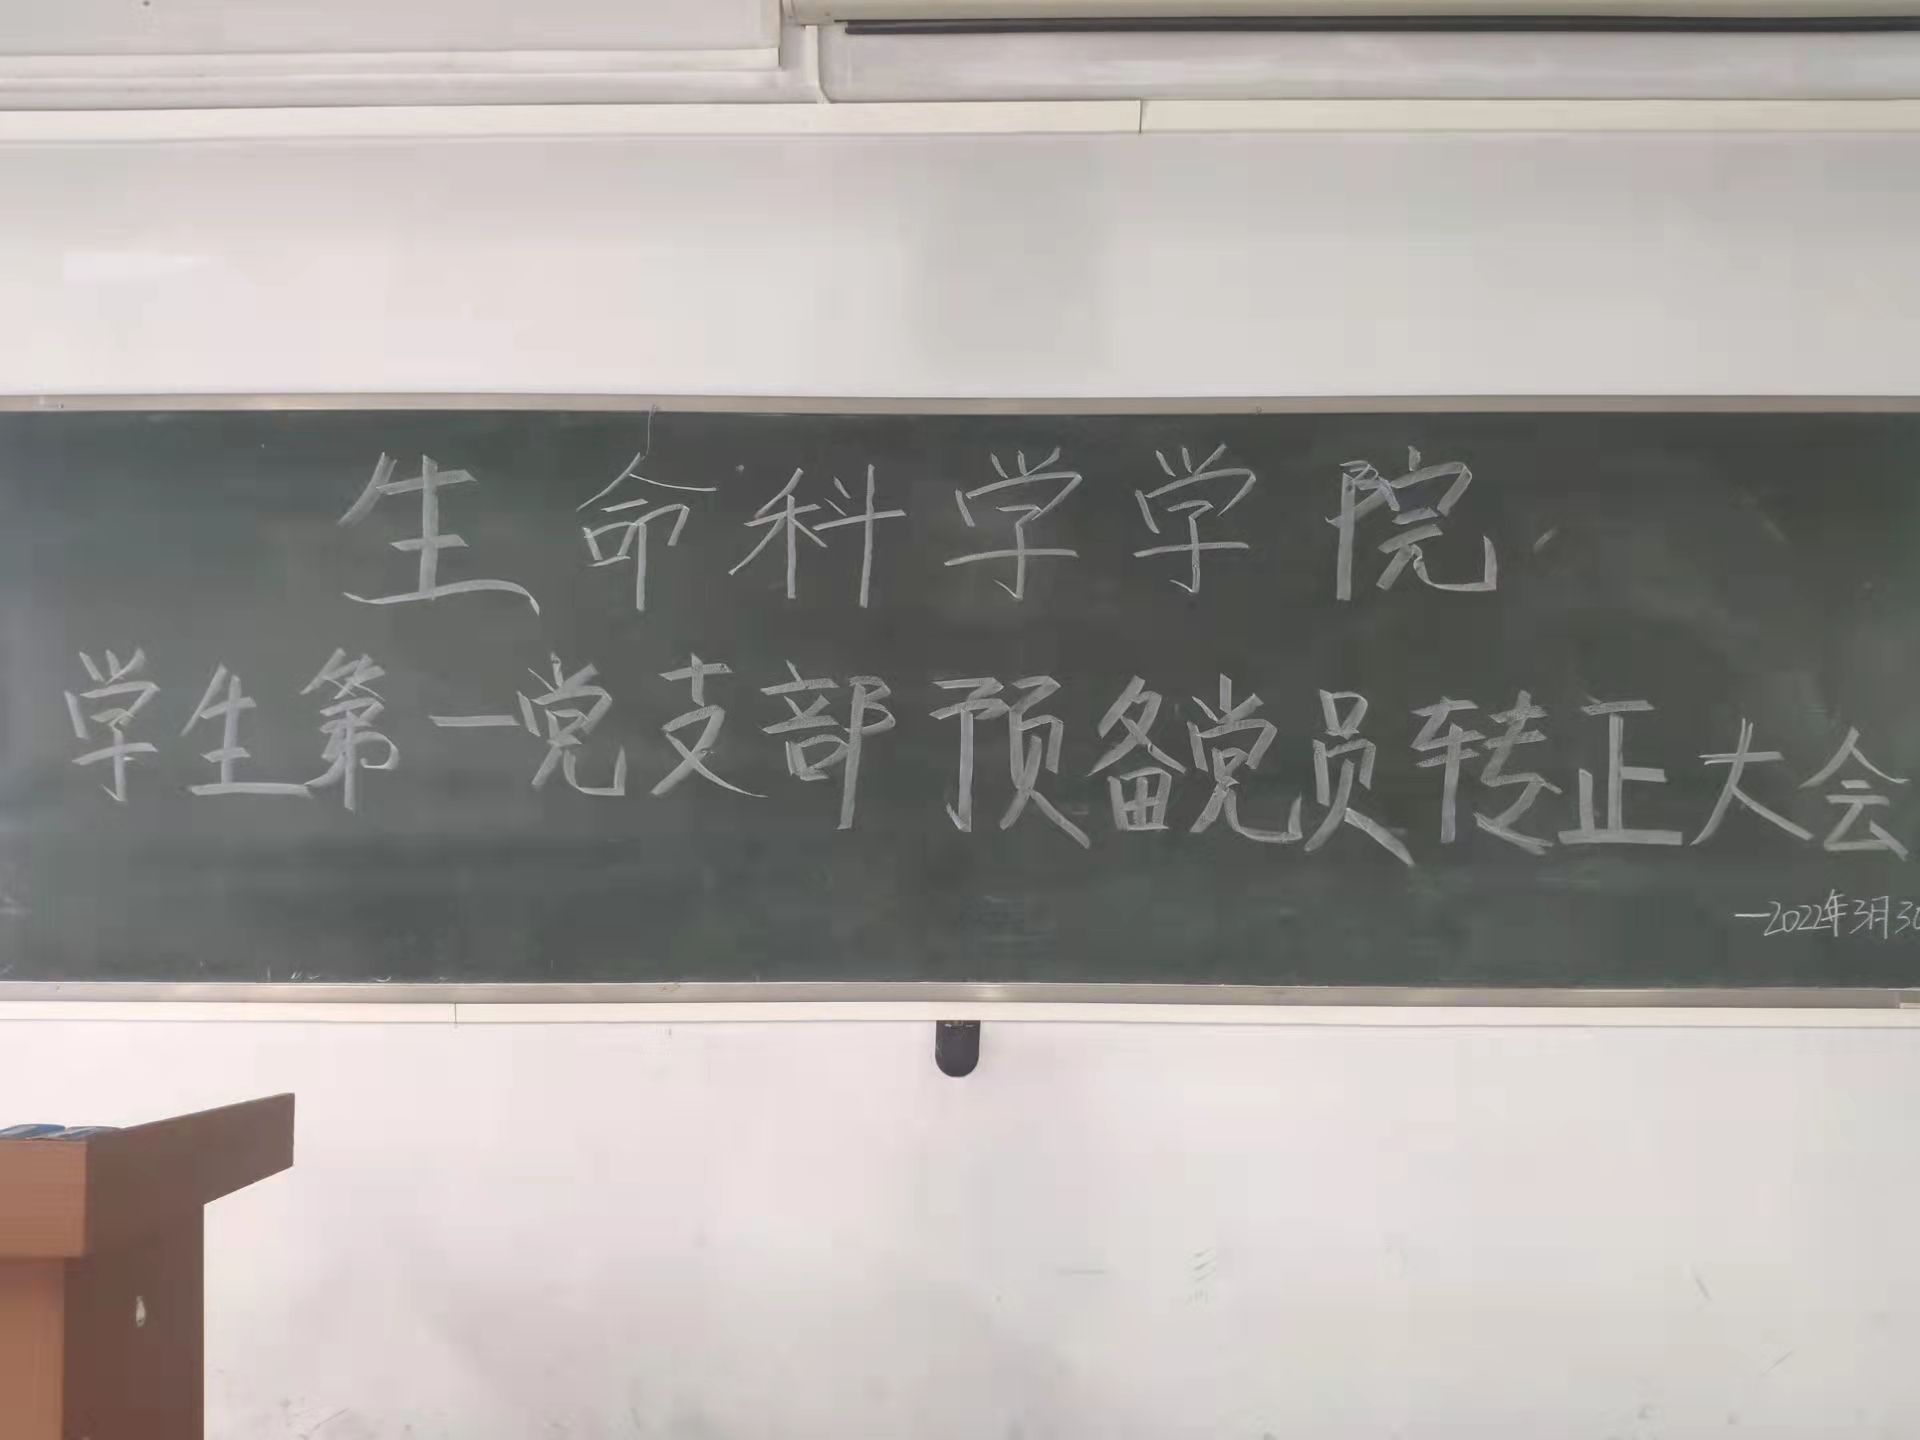 生命科学学院
学生第一党支部预备党员转正大会
—2022年3月30